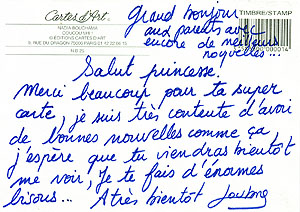 Cartes d'Art
NADIA BOUCHAMI
COUCOU !
© EDITIONS CARTES D'ART
9, RUE DU DRAGON 75006 PARIS
TIMBRE/STAMP
Grand bonjour
aux parents avec
encore de meilleurs
nouvelles...
Salut princesse!
Merci beaucoup pour ta super
carte, je suis très contente d'avoir
de bonnes nouvelles comme ça,
j'espère que tu viendras bientôt
me voir, Je te fais d'énormes
bisous... A très bientôt